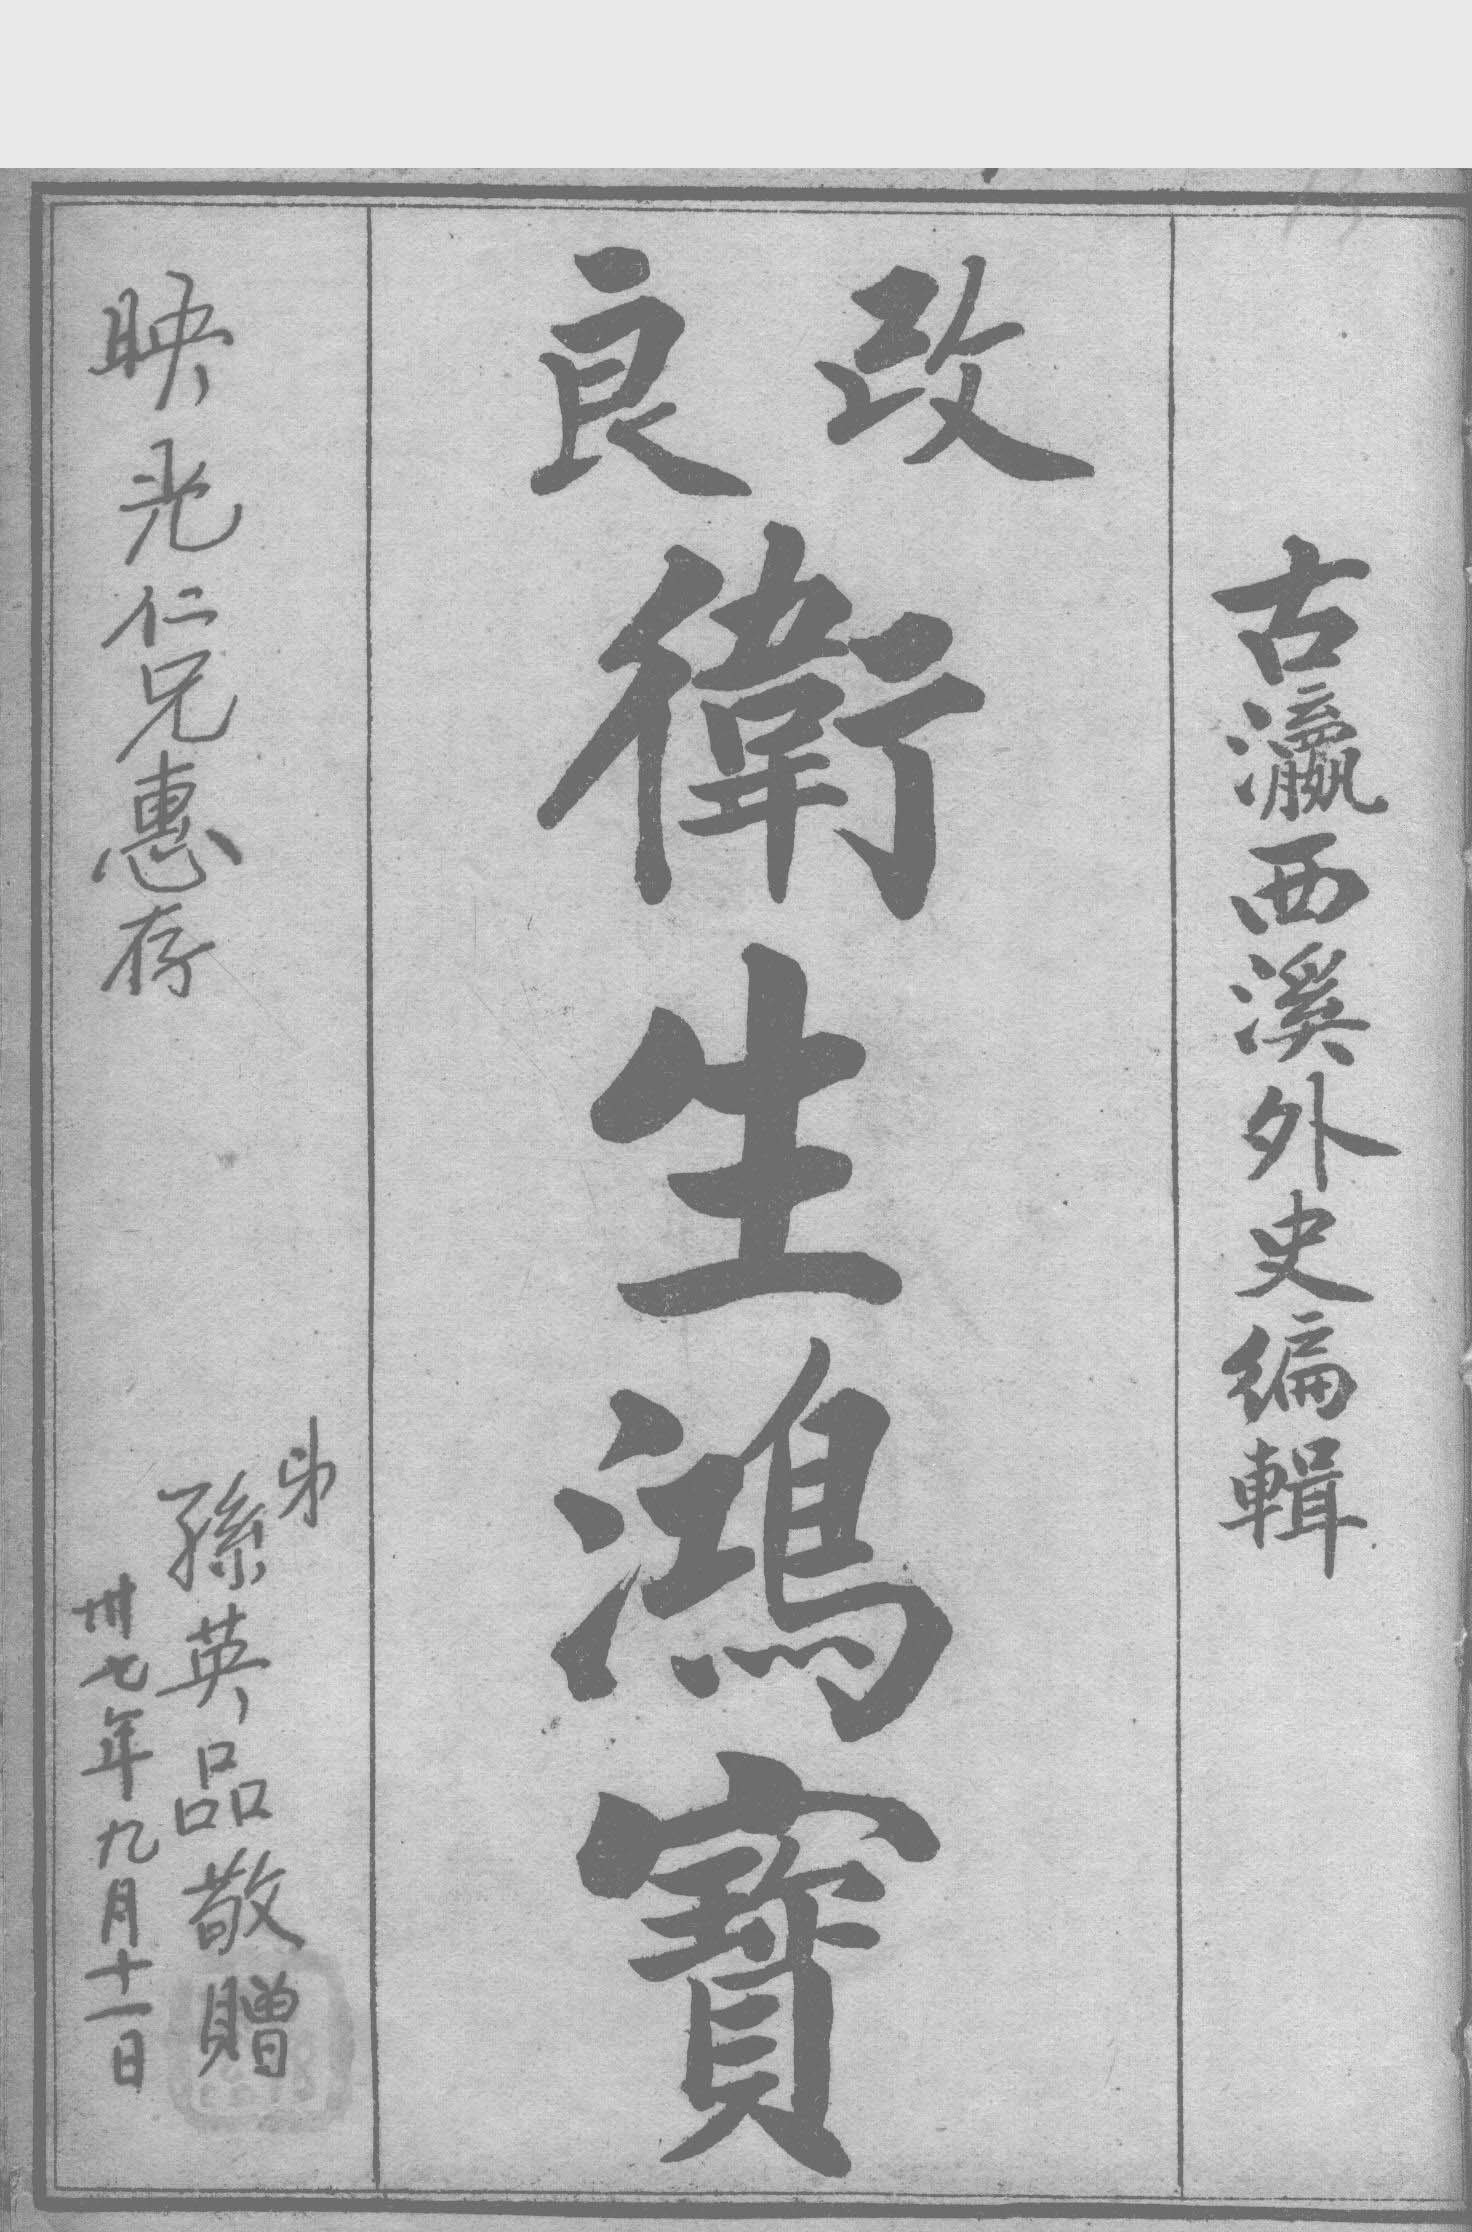 古瀛西溪外史編輯
改良
衛生鴻寶
映光仁兄惠存
弟
孫英品敬贈
卅七年九月十一日